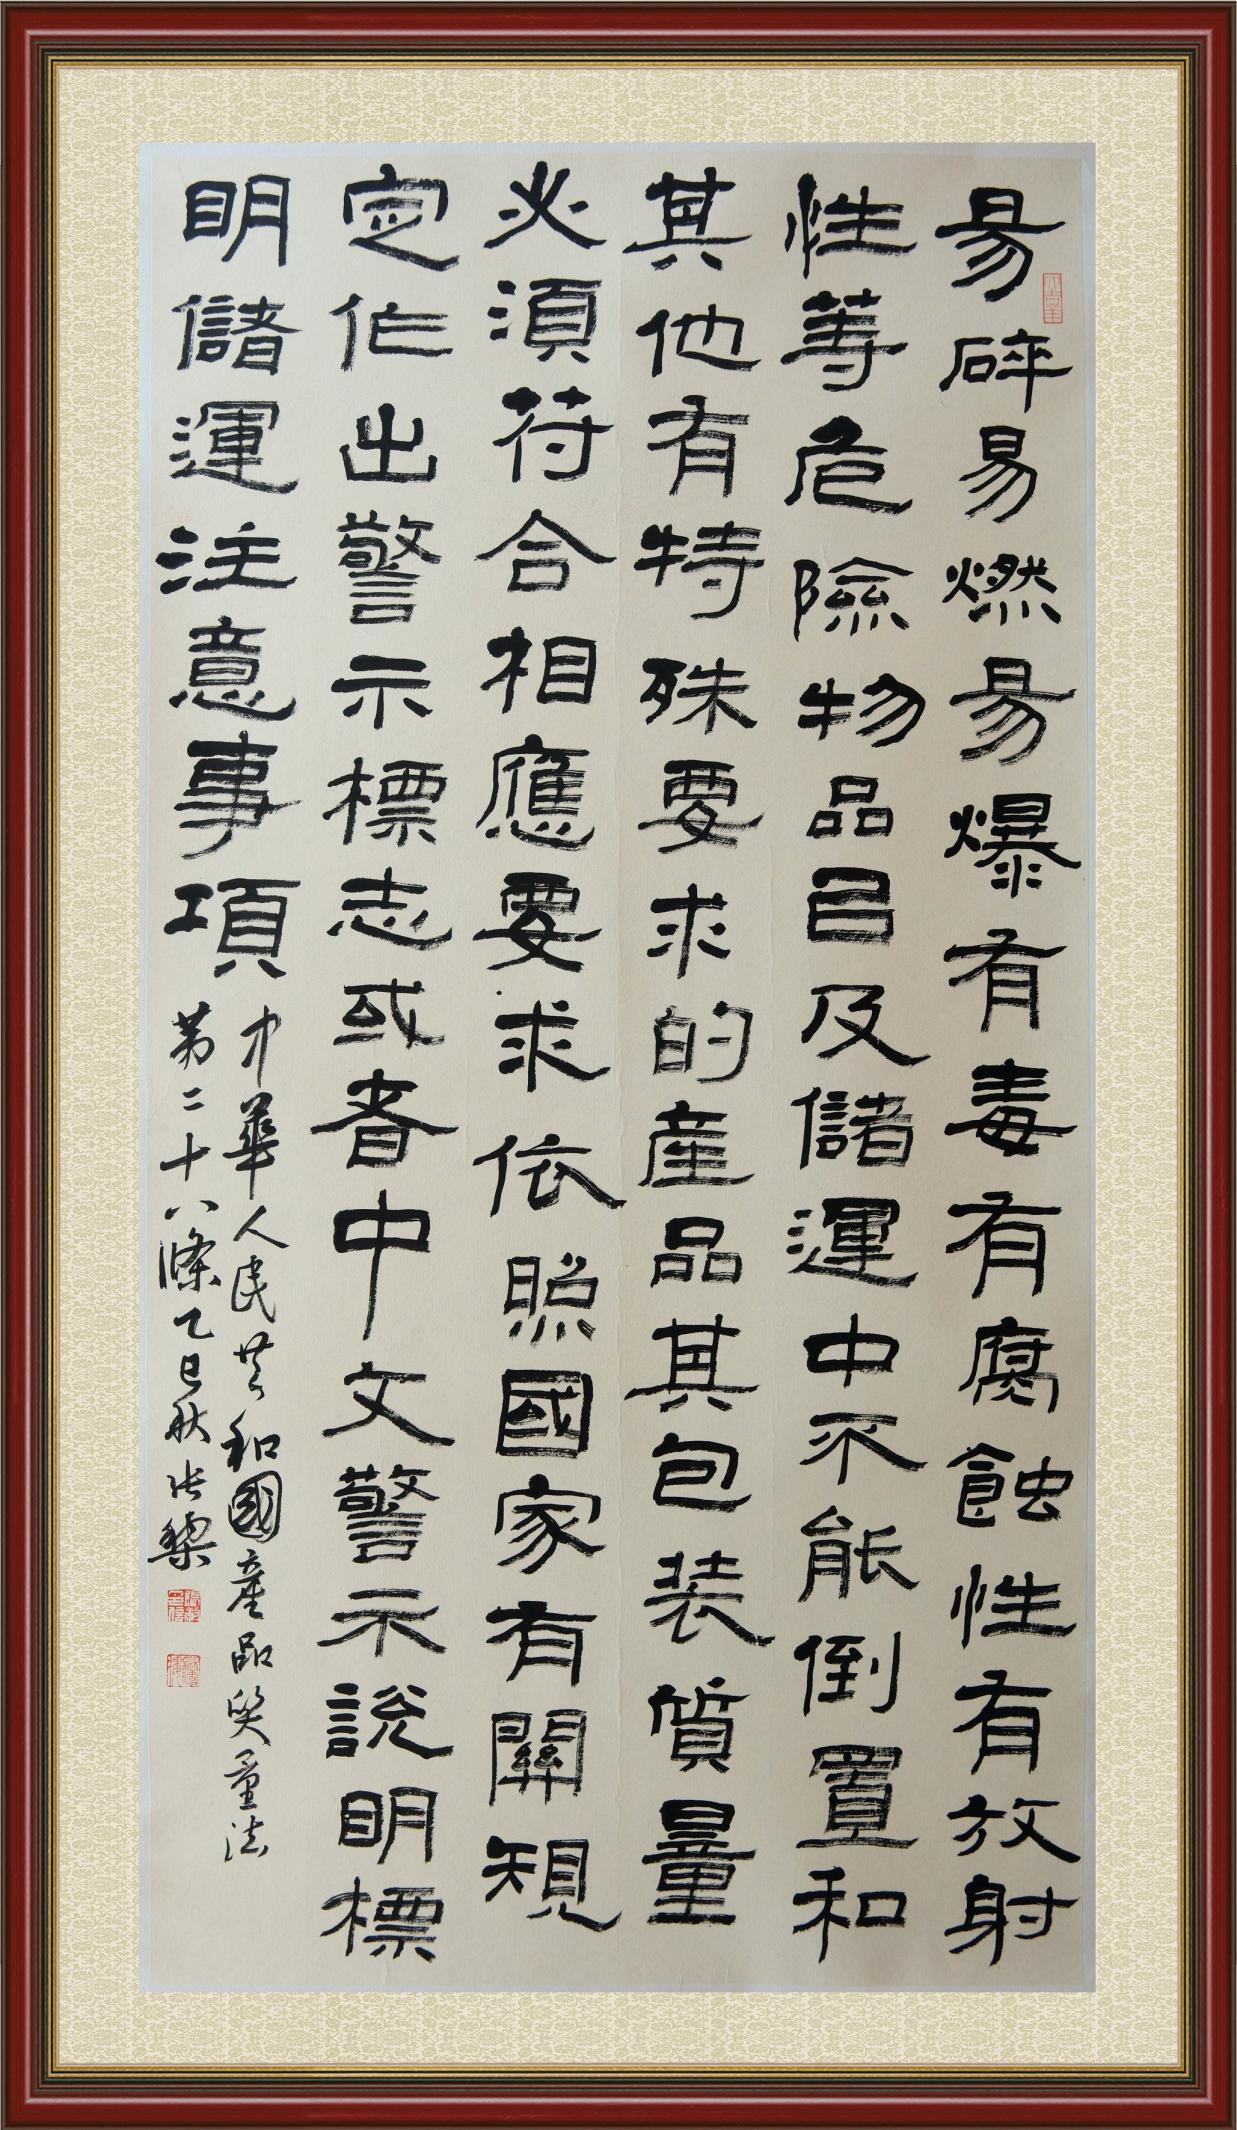 易碎易燃易爆有毒有腐蝕性有放射
性等危險物品㠯及儲運中不能倒置和
其他有特殊要求的產品其包装質量
必須符合相應要求依照國家有關規
定作出警示標志或者中文警示說明標
明儲運注意事項
中華人民共和國產品質量法
第二十八條乙巳秋張黎